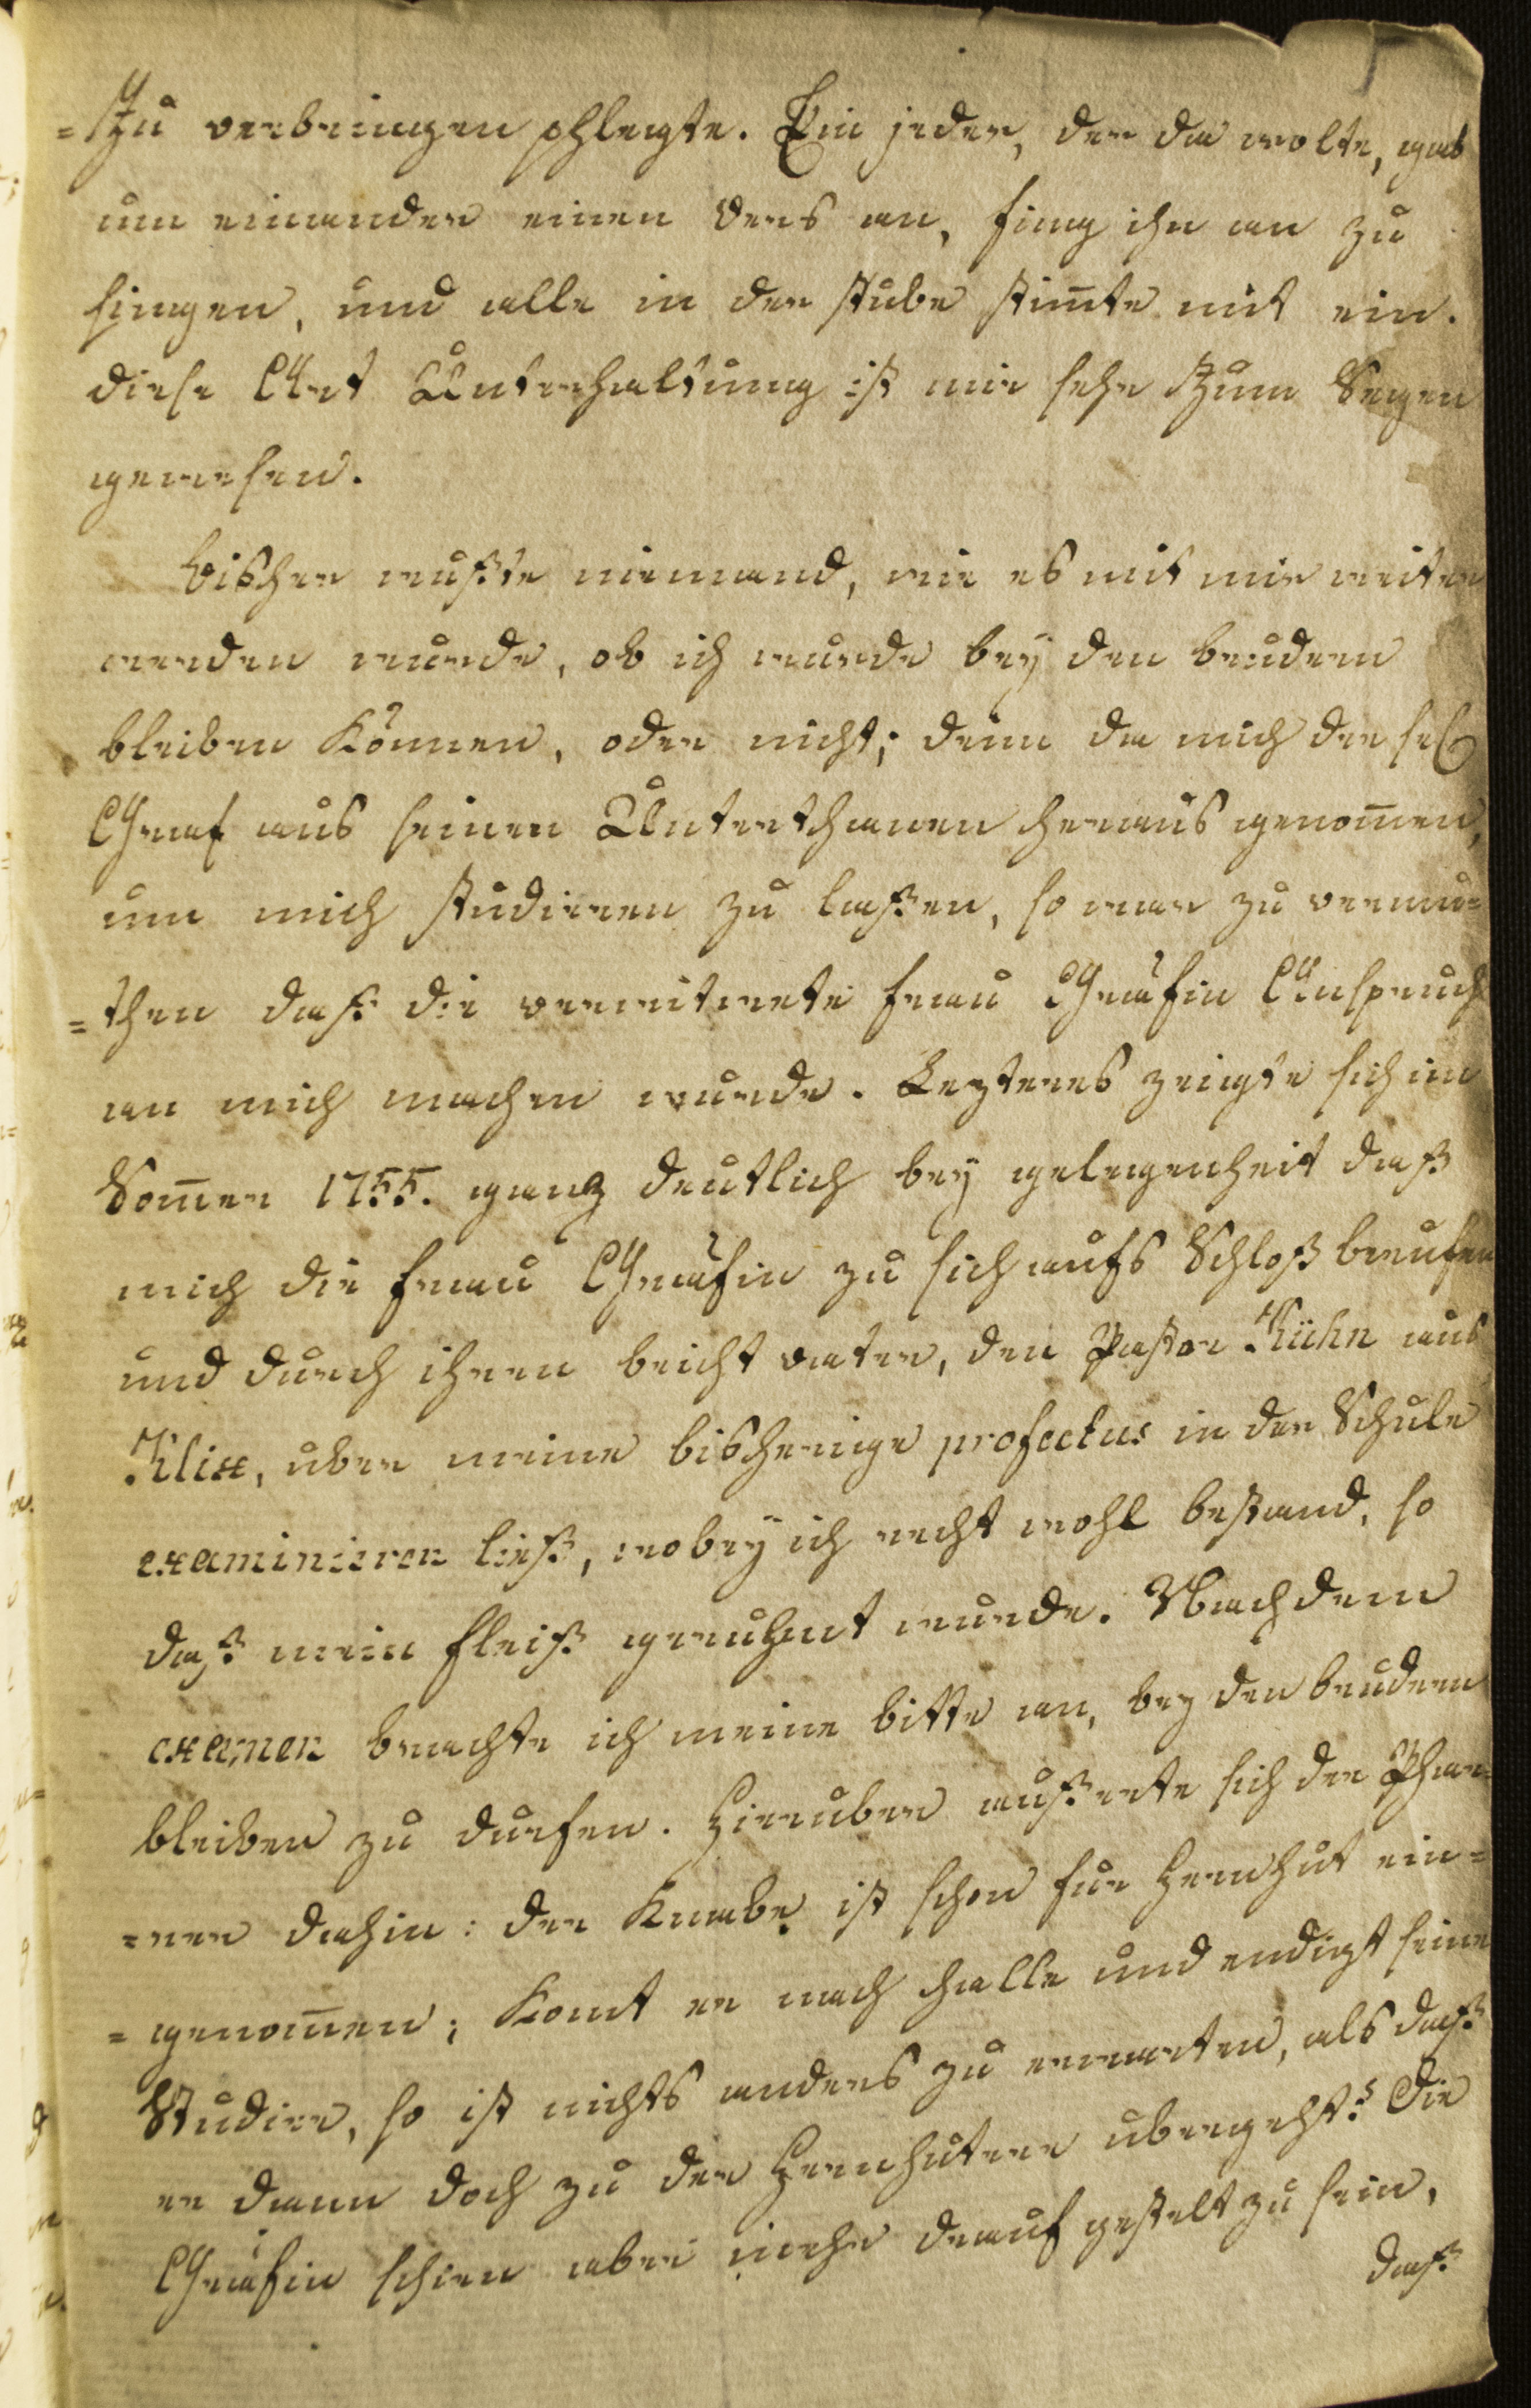 =Zu verbringen phlegte. Ein jeder, der da wolte, gab
um einander einen Vers an, fing ihn an zu
singen, und alle in der stube stim̅te mit ein.
diese Art Unterhaltung ist mir sehr Zum Segen
gewesen.
bisher wußte niemand, wie es mit mir weiter
werden wurde, ob ich wurde bey den brudern
bleiben Können, oder nicht; denn da mich der sel
Graf aus seinen Unterthanen heraus genom̅en,
um mich studieren zu laßen, so war zu vermu=
=then daß die verwitwete frau Gräfin Anspruch
an mich machen wurde. Lezteres zeigte sich im
Som̅er 1755. ganz deutlich bey gelegenheit daß
mich die frau Gräfin zu sich aufs Schloß berufen
und durch ihren beicht vater, den Pastor Kühn aus
Klix, uber meine bisherige profectus in der Schule
examinieren ließ, wobey ich recht wohl bestand, so
daß mein fleiß geruhmt wurde. Nach dem
examen brachte ich meine bitte an, bey den brudern
bleiben zu durfen. Hieruber außerte sich der Phar=
=rer dahin: der Knabe ist schon fur Hernhut ein=
=genom̅en; Komt er nach halle und endigt seine
Studien, so ist nichts anders zu erwarten, als daß
er dann doch zu der Hernhutern ubergeht: Die
Gräfin schien aber mehr drauf gestelt zu sein,
daß